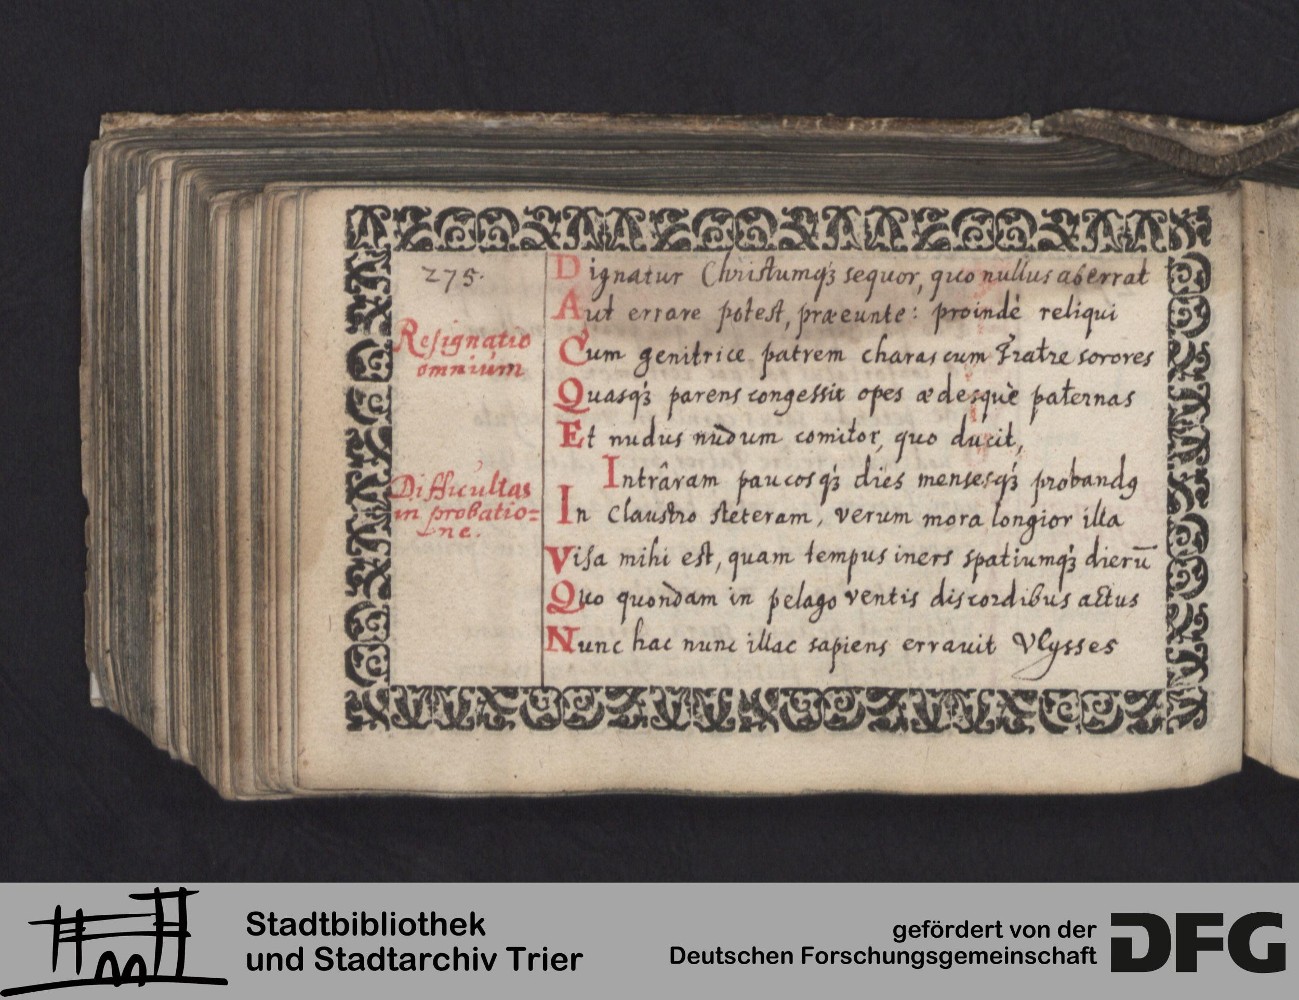 275.
Resignatio
omnium
Difficultas
in probatio=
ne.
Dignatur Christumq́ꝫ sequor, quo nullus aberrat
Aut errare potest, præeunte: proindè reliqui
Cum genitrice patrem charas cum Fratre sorores
Quasq́ꝫ parens congessit opes ædesquè paternas
Et nudus nudum comitor, quo ducit,
Intrâram paucosq́ꝫ dies mensesq́ꝫ probandꝰ
In claustro steteram, verum mora longior illa
Visa mihi est, quam tempus iners spatiumq́ꝫ dierū
Quo quondam in pelago ventis discordibus actus
Nunc hac nunc illac sapiens errauit Vlysses
Stadtbibliothek
und Stadtarchiv Trier
gefördert von der
Deutschen Forschungsgemeinschaft
DFG